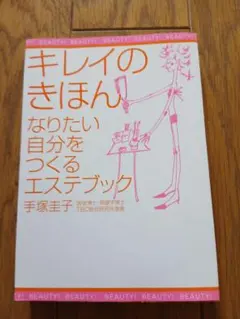 BEAUTY! BEAUTY! BEAUTY! BEAUTY!
キレイの
きほん
なりたい
自分を
つくる
エステブック
手塚圭子
BEAUTY! BEAUTY! BEAUTY! BEAUTY!